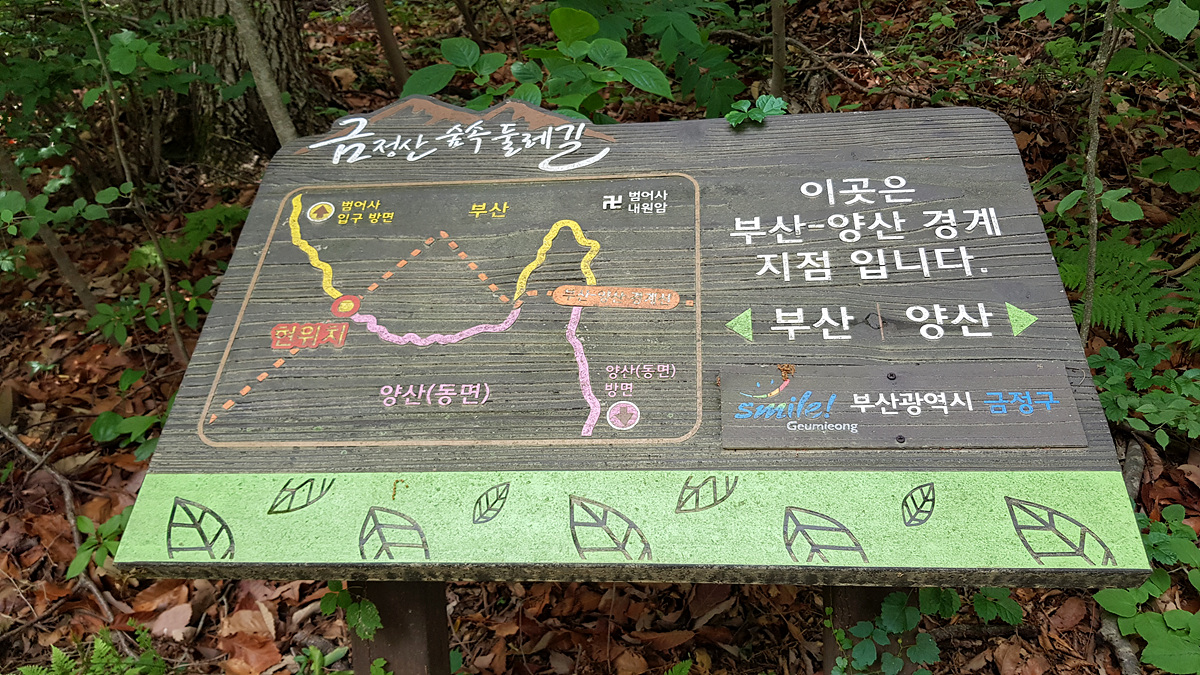 금정산 숲속 둘레길
범어사
입구 방면
부산
卍 범어사
내원암
부산·양산 경계선
현위치
양산(동면)
양산(동면)
방면
이곳은
부산-양산 경계
지점 입니다.
부산 | 양산
smile!
Geumjeong
부산광역시 금정구